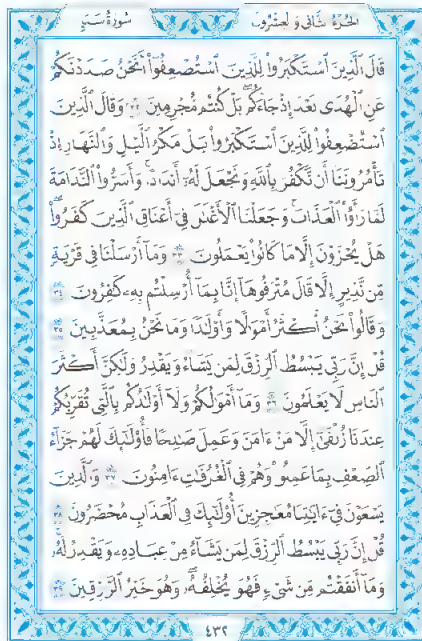 الجزء الثاني والعشرون سورة سبإ
قَالَ ٱلَّذِينَ ٱسْتَكْبَرُوا۟ لِلَّذِينَ ٱسْتُضْعِفُوٓا۟ أَنَحْنُ صَدَدْنَٰكُمْ
عَنِ ٱلْهُدَىٰ بَعْدَ إِذْ جَآءَكُم بَلْ كُنتُم مُّجْرِمِينَ ٣٢ وَقَالَ ٱلَّذِينَ
ٱسْتُضْعِفُوا۟ لِلَّذِينَ ٱسْتَكْبَرُوا۟ بَلْ مَكْرُ ٱلَّيْلِ وَٱلنَّهَارِ إِذْ
تَأْمُرُونَنَآ أَن نَّكْفُرَ بِٱللَّهِ وَنَجْعَلَ لَهُۥٓ أَندَادًا وَأَسَرُّوا۟ ٱلنَّدَامَةَ
لَمَّا رَأَوُا۟ ٱلْعَذَابَ وَجَعَلْنَا ٱلْأَغْلَٰلَ فِىٓ أَعْنَاقِ ٱلَّذِينَ كَفَرُوا۟
هَلْ يُجْزَوْنَ إِلَّا مَا كَانُوا۟ يَعْمَلُونَ ٣٣ وَمَآ أَرْسَلْنَا فِى قَرْيَةٍ
مِّن نَّذِيرٍ إِلَّا قَالَ مُتْرَفُوهَآ إِنَّا بِمَآ أُرْسِلْتُم بِهِۦ كَٰفِرُونَ ٣٤
وَقَالُوا۟ نَحْنُ أَكْثَرُ أَمْوَٰلًا وَأَوْلَٰدًا وَمَا نَحْنُ بِمُعَذَّبِينَ ٣٥
قُلْ إِنَّ رَبِّى يَبْسُطُ ٱلرِّزْقَ لِمَن يَشَآءُ وَيَقْدِرُ وَلَٰكِنَّ أَكْثَرَ
ٱلنَّاسِ لَا يَعْلَمُونَ ٣٦ وَمَآ أَمْوَٰلُكُمْ وَلَآ أَوْلَٰدُكُم بِٱلَّتِى تُقَرِّبُكُمْ
عِندَنَا زُلْفَىٰٓ إِلَّا مَنْ ءَامَنَ وَعَمِلَ صَٰلِحًا فَأُو۟لَٰٓئِكَ لَهُمْ جَزَآءُ
ٱلضِّعْفِ بِمَا عَمِلُوا۟ وَهُمْ فِى ٱلْغُرُفَٰتِ ءَامِنُونَ ٣٧ وَٱلَّذِينَ
يَسْعَوْنَ فِىٓ ءَايَٰتِنَا مُعَٰجِزِينَ أُو۟لَٰٓئِكَ فِى ٱلْعَذَابِ مُحْضَرُونَ ٣٨
قُلْ إِنَّ رَبِّى يَبْسُطُ ٱلرِّزْقَ لِمَن يَشَآءُ مِنْ عِبَادِهِۦ وَيَقْدِرُ لَهُۥ
وَمَآ أَنفَقْتُم مِّن شَىْءٍ فَهُوَ يُخْلِفُهُۥ وَهُوَ خَيْرُ ٱلرَّٰزِقِينَ ٣٩
٤٣٢